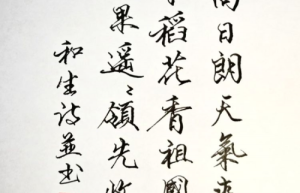 日朗天氣
稻花香祖國
果遥々領先
和生诗並书